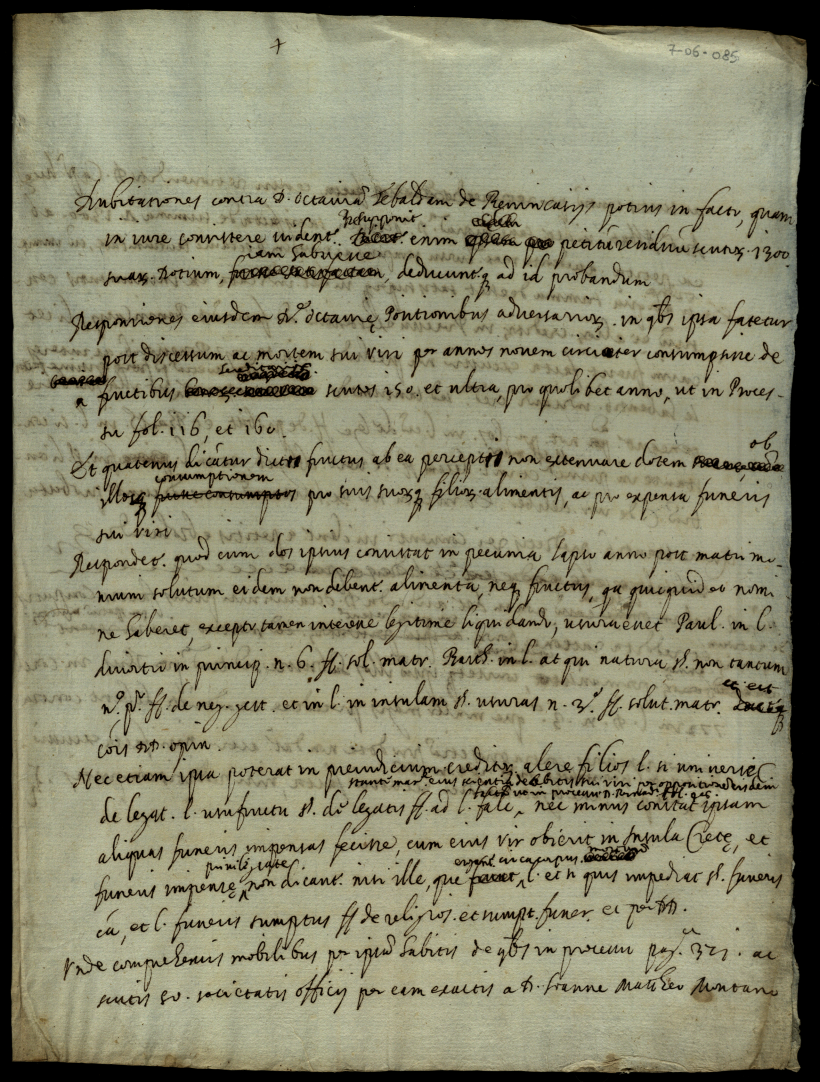 7-06-085
Dubitationes contra D. Octaviã Sebaldam de potius in facto, quam
Presupponit
in iure consistere vident.r enim petitũ residuũ scutor. 1300
iam habuisse
suar. Dotium, deducunt.q ad id probandum
Responsiones eiusdem D. Octavię Positionibus adversarior. in qbs ipsa fatetur
post discessum ac mortem sui viri per annos novem circiter consumpsisse de
fructibus scutos 150. et ultra, pro quolibet anno, ut in Proces-
su fol. 116, et 160.
Et quatenus dicãtur dicti fructus ab ea percepti non extenuare dotem ob
consumptionem
illor. pro suis suorq filior. alimentis, ac pro expensa funeris
sui viri
Respondet. quod cum dos ipsius consistat in pecunia lapso anno post matrimo-
nium solutum eidem non debent. alimenta, neq fructus, qa quicquid eo nomi
ne haberet, excepto tamen interesse legitime liquidando, usura esset Paul. in l.
divortio in princip. n. 6. ff. sol. matr. in l. atqui natura §. non tantum
n.º p.º ff. de neg. gest. et in l. in insulam §. usuras n. 3.º ff. solut. matr. et est
cõis DD. opin.
Nec etiam ipsa poterat in preiudicium creditor. alere filios l. si
de legat. l. usufructu ff. ad l. falc., nec minus constat ipsam
aliquas funeris impensas fecisse, cum eius vir obierit in Insula Cretę, et
funeris impense non dicant. nisi ille, que circa corpus l. et si quis impediat §. funeris
cã, et l. funeris sumptus ff. de religios. et sumpt. funer. et per DD.
Unde comprehensis mobilibus per ipsã habitis de qbs in processu pag.ª 321. ac
scutis 50. societatis officij per eam exactis a D. Ioanne Mattheo Montano